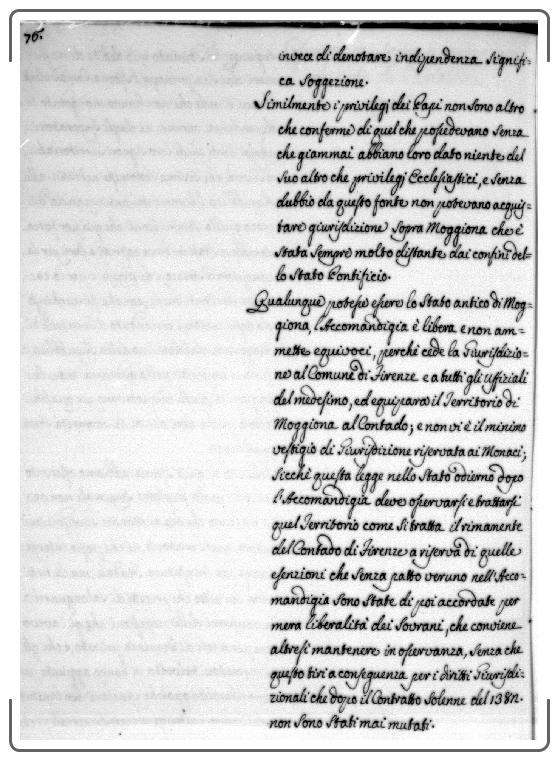 76.
invece di denotare indipendenza signifi-
ca soggezione.
Similmente i privilegi dei Papi non sono altro
che conferme di quel che possedevano senza
che giammai abbiano loro dato niente del
suo altro che privilegj Ecclesiastici, e senza
dubbio da questo fonte non potevano acquis-
tare giurisdizione sopra Moggiona che è
stata sempre molto distante dai confini del-
lo Stato Pontificio.
Qualunque potesse essere lo Stato antico di Mog-
giona, l'Accomandigia è libera e non am-
mette equivoci, perchè cede la Giurisdizio-
ne al Comune di Firenze e a tutti gli Ufiziali
del medesimo, ed equipara il Territorio di
Moggiona al Contado; e non vi è il minimo
vestigio di Giurisdizione riservata ai Monaci;
Sicchè questa legge nello Stato odierno dopo
l'Accomandigia deve osservarsi e trattarsi
quel Territorio come si tratta il rimanente
del Contado di Firenze a riserva di quelle
esenzioni che senza patto veruno nell'Acco-
mandigia sono state di poi accordate per
mera liberalità dei Sovrani, che conviene
altresì mantenere in osservanza, senza che
questo tiri a conseguenza per i diritti Giurisdi-
zionali che dopo il Contratto solenne del 1382.
non sono stati mai mutati.